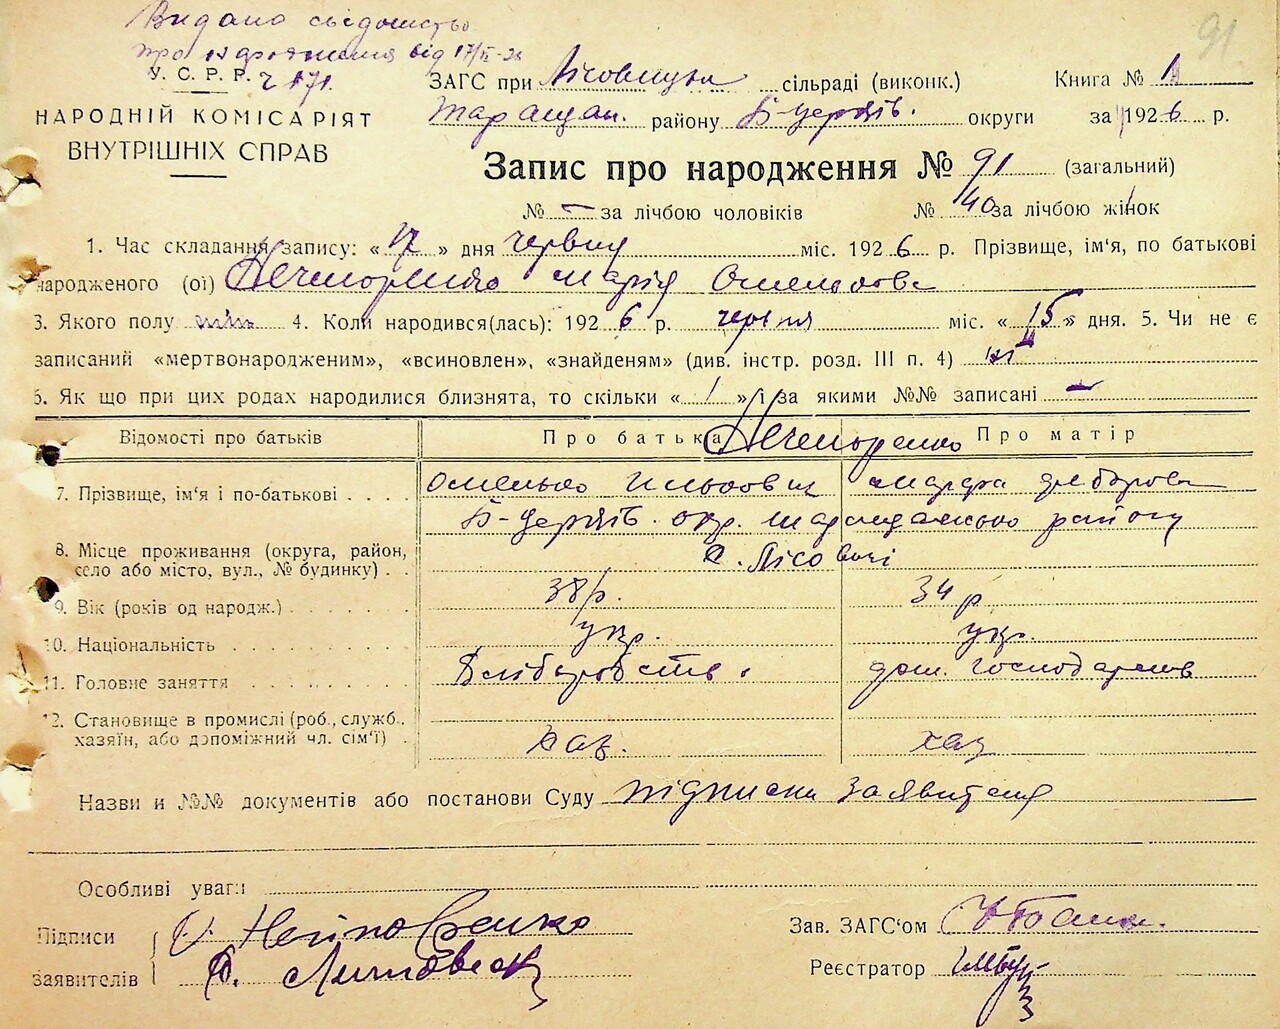 Видано свідоцтво
про народження від 17/II-28
У. С. Р. Р. 171.
НАРОДНІЙ КОМІСАРІЯТ
ВНУТРІШНІХ СПРАВ
91
ЗАГС при сільраді (виконк.) Книга № 1
Таращан. району Б-Церків. округи за 1926 р.
Запис про народження № 91 (загальний)
№ – за лічбою чоловіків № 40 за лічбою жінок
1. Час складання запису: «17» дня червня міс. 1926 р. Прізвище, ім'я, по батькові
народженого (ої) Нечипоренко Марія Омельков
3. Якого полу жін 4. Коли народився(лась): 1926 р. червня міс. «15» дня. 5. Чи не є
записаний «мертвонародженим», «всиновлен», «знайденям» (див. інстр. розд. III п. 4) ні
6. Як що при цих родах народилися близнята, то скільки «1» і за якими №№ записані –
Відомості про батьків Про батька Нечипоренко Про матір
7. Прізвище, ім'я і по-батькові Омелько Ількович Марфа
Б-Церків. окр. Таращанського району
8. Місце проживання (округа, район,
село або місто, вул., № будинку) с. Лісовичі
9. Вік (років од народж.) 38 р. 34 р.
10. Національність укр. укр.
11. Головне заняття Хліборобств. дом. господарств
12. Становище в промислі (роб., служб.,
хазяїн, або допоміжний чл. сім'ї) хаз. хаз
Назви и №№ документів або постанови Суду підписки заявителя
Особливі уваги
Підписи
заявителів
Зав. ЗАГС'ом
Реєстратор